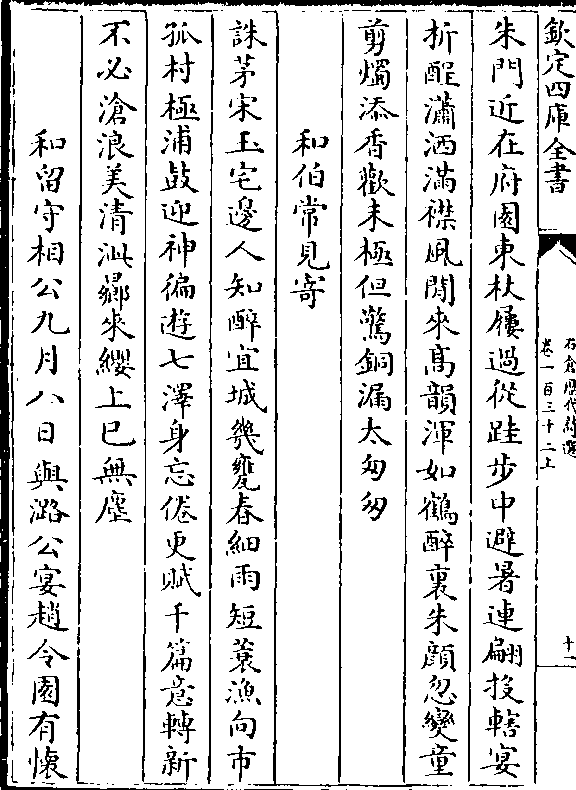 欽定四庫全書
石倉歷代詩選
卷一百三十二上
十一
朱門近在府園東杖屨過從跬步中避暑連翩投轄宴
折酲瀟洒滿襟風閒來高韻渾如鶴醉裏朱顔忽變童
剪燭添香歡未極但驚銅漏太匆匆
和伯常見寄
誅茅宋玉宅邊人知醉宜城幾甕春細雨短蓑漁向市
孤村極浦鼓迎神徧遊七澤身忘倦更賦千篇意轉新
不必滄浪美清泚鄉來纓上已無塵
和留守相公九月八日與潞公宴趙令園有懷